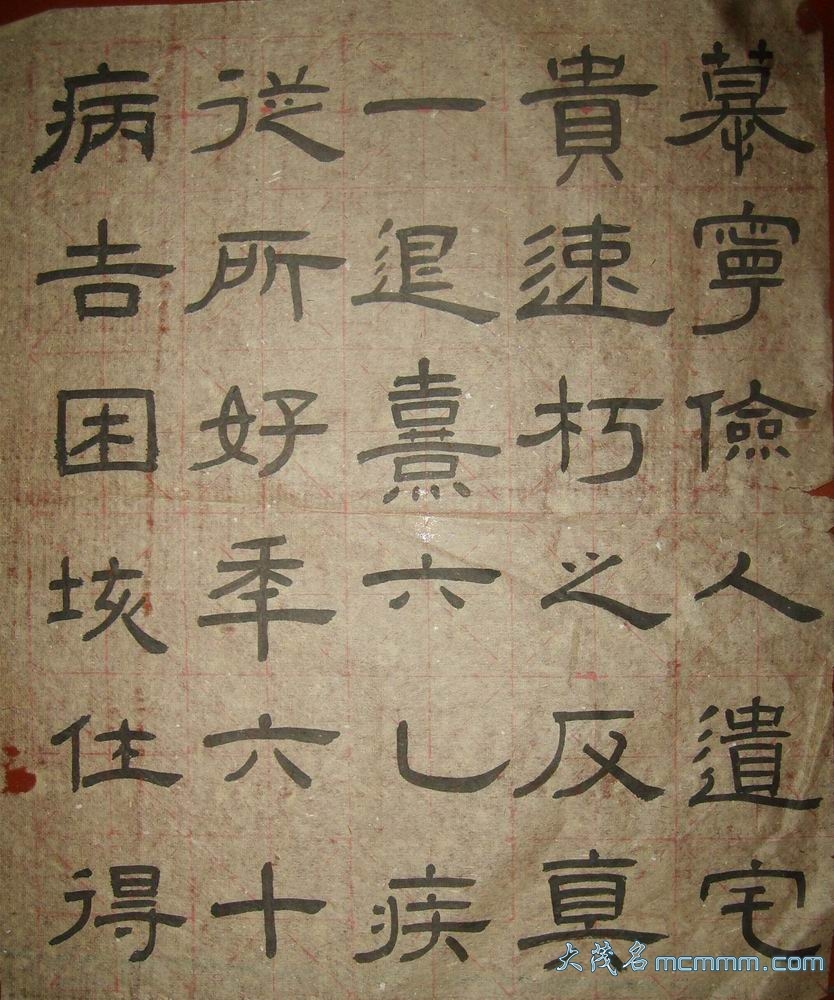 慕寧儉人遺宅
貴速朽之反真
一退熹六乚疾
從所好秊六十
病吉困垓住得
大茂名mcmmm.com